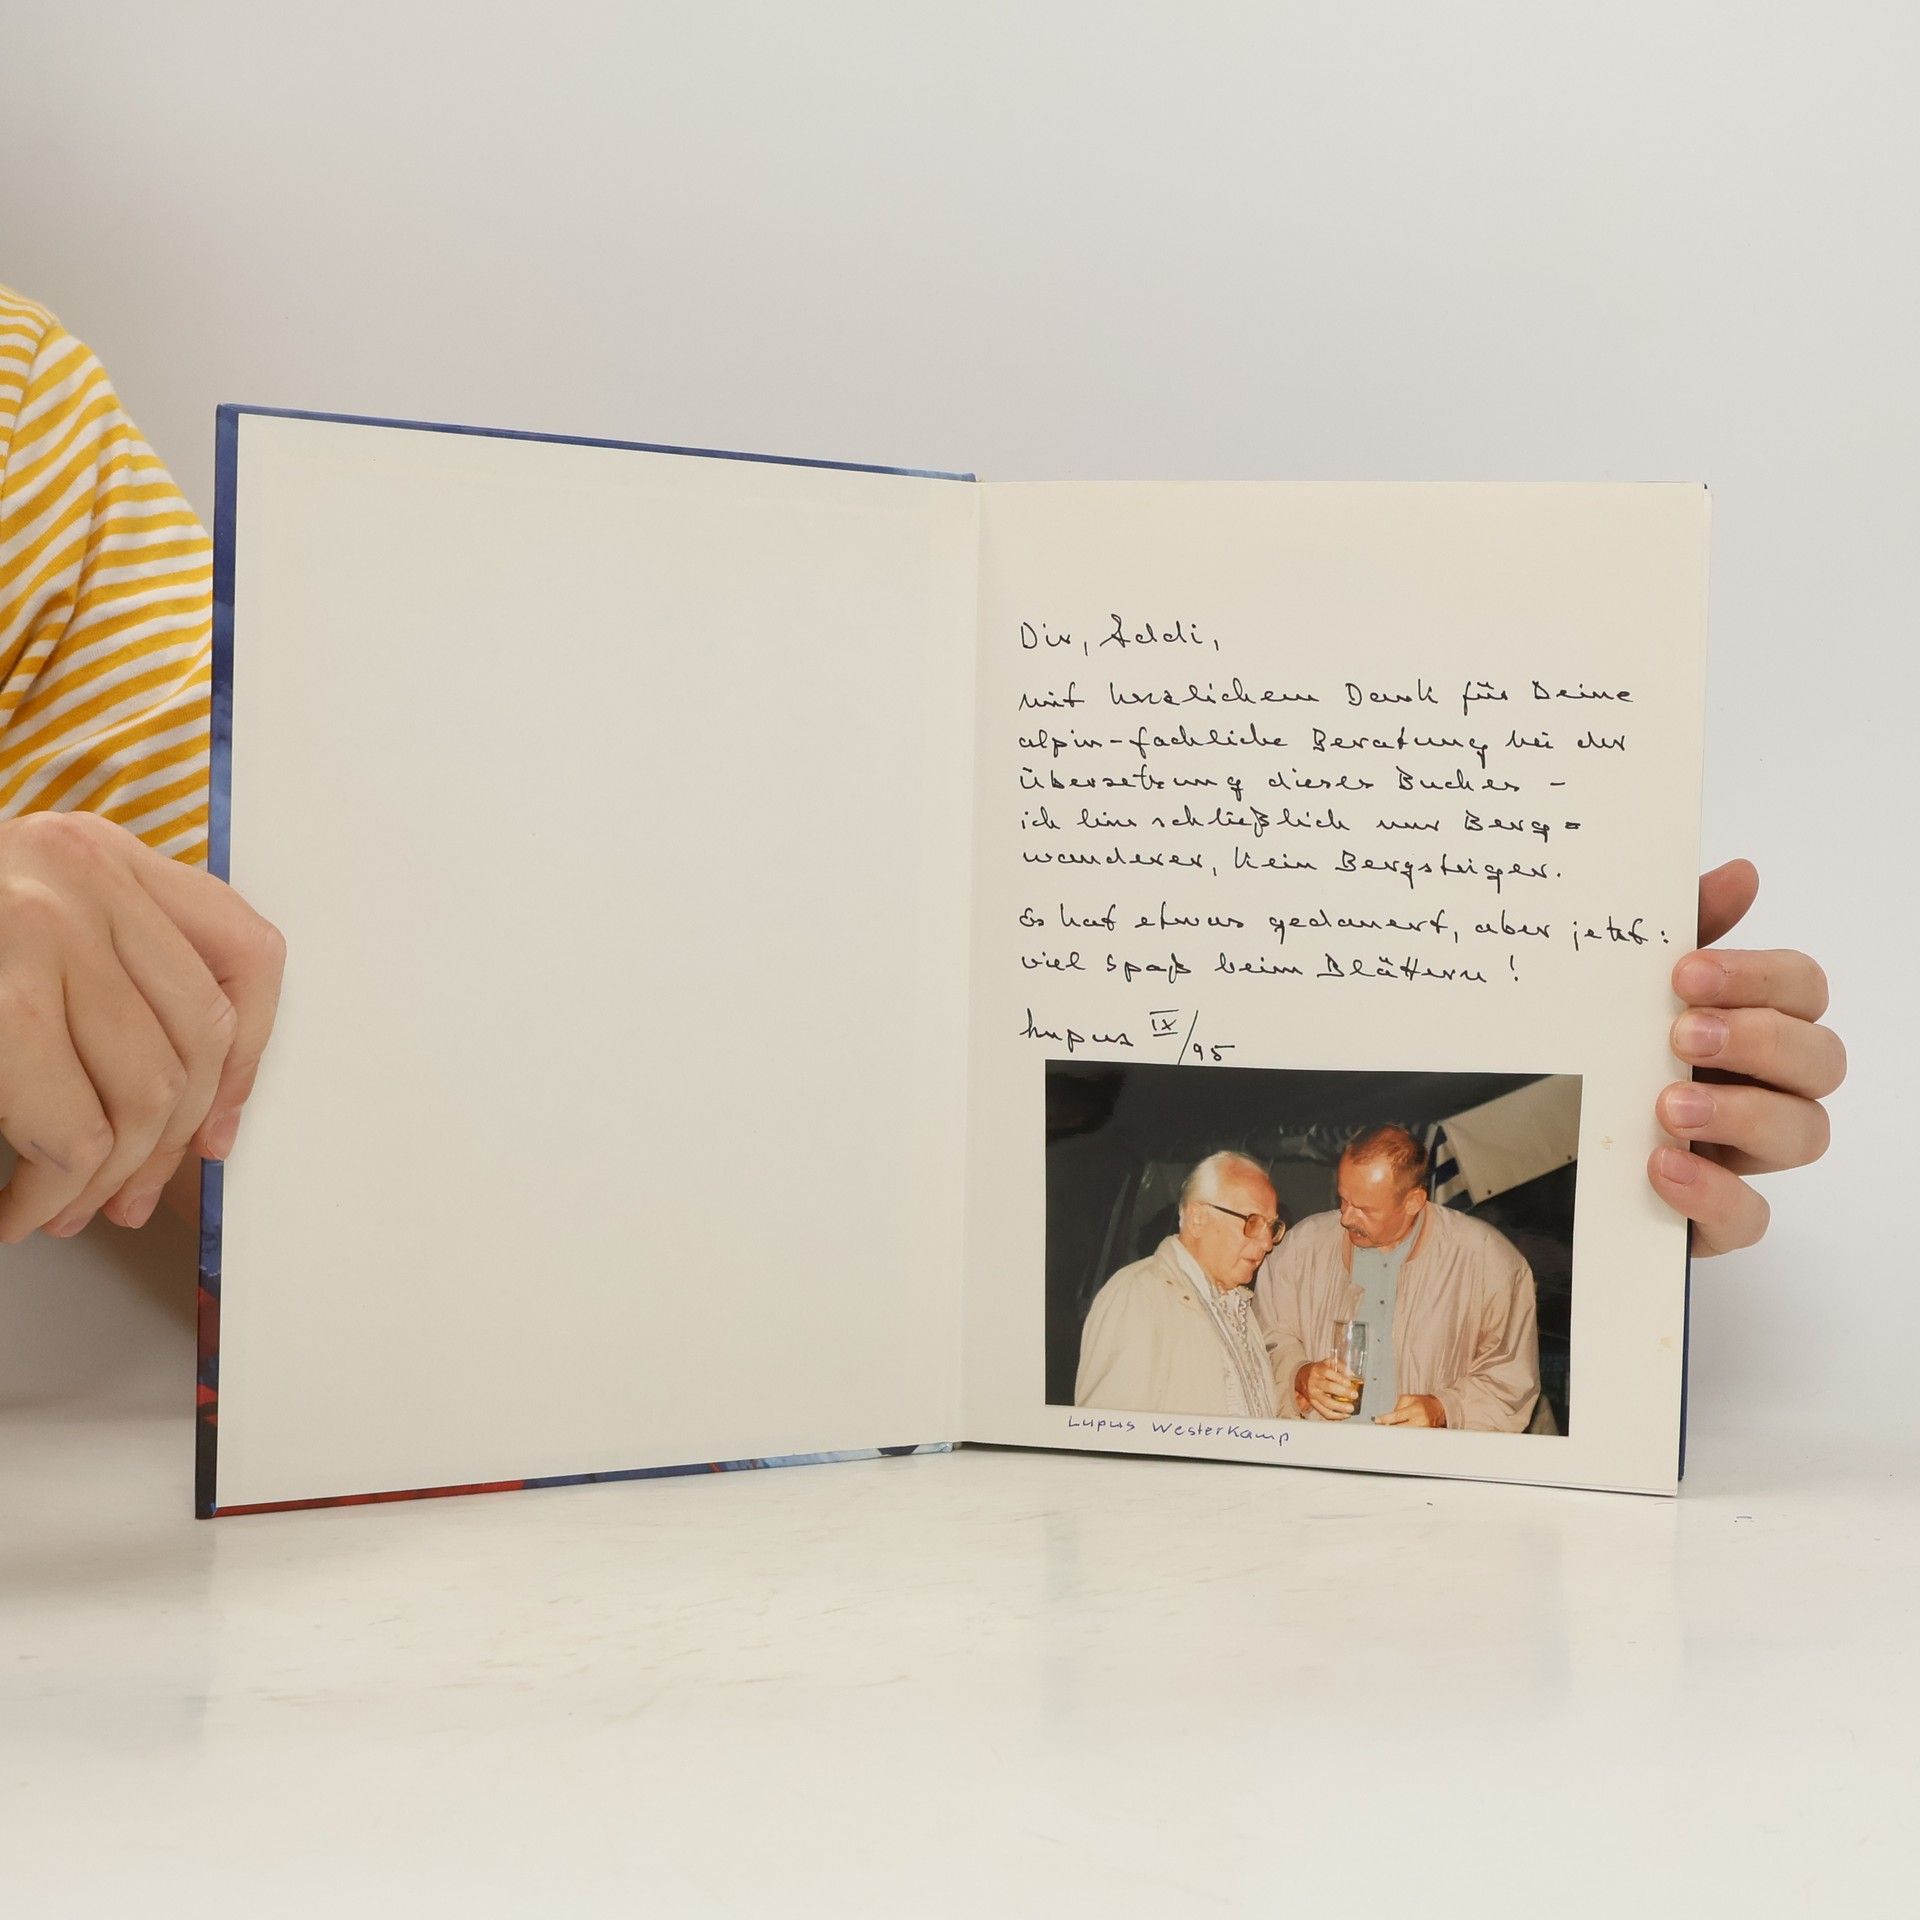 Dir, Addi,
mit herzlichem Dank für Deine
alpin-fachliche Beratung bei der
Übersetzung dieses Buches –
ich bin schließlich nur Berg=
wanderer, kein Bergsteiger.
Es hat etwas gedauert, aber jetzt:
viel Spaß beim Blättern!
Lupus IX/95
Lupus Westerkamp